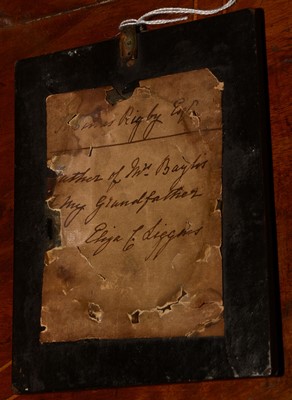 Thomas Rigby Esq.
father of Mrs Baylis
My Grandfather
Eliza C Liggins